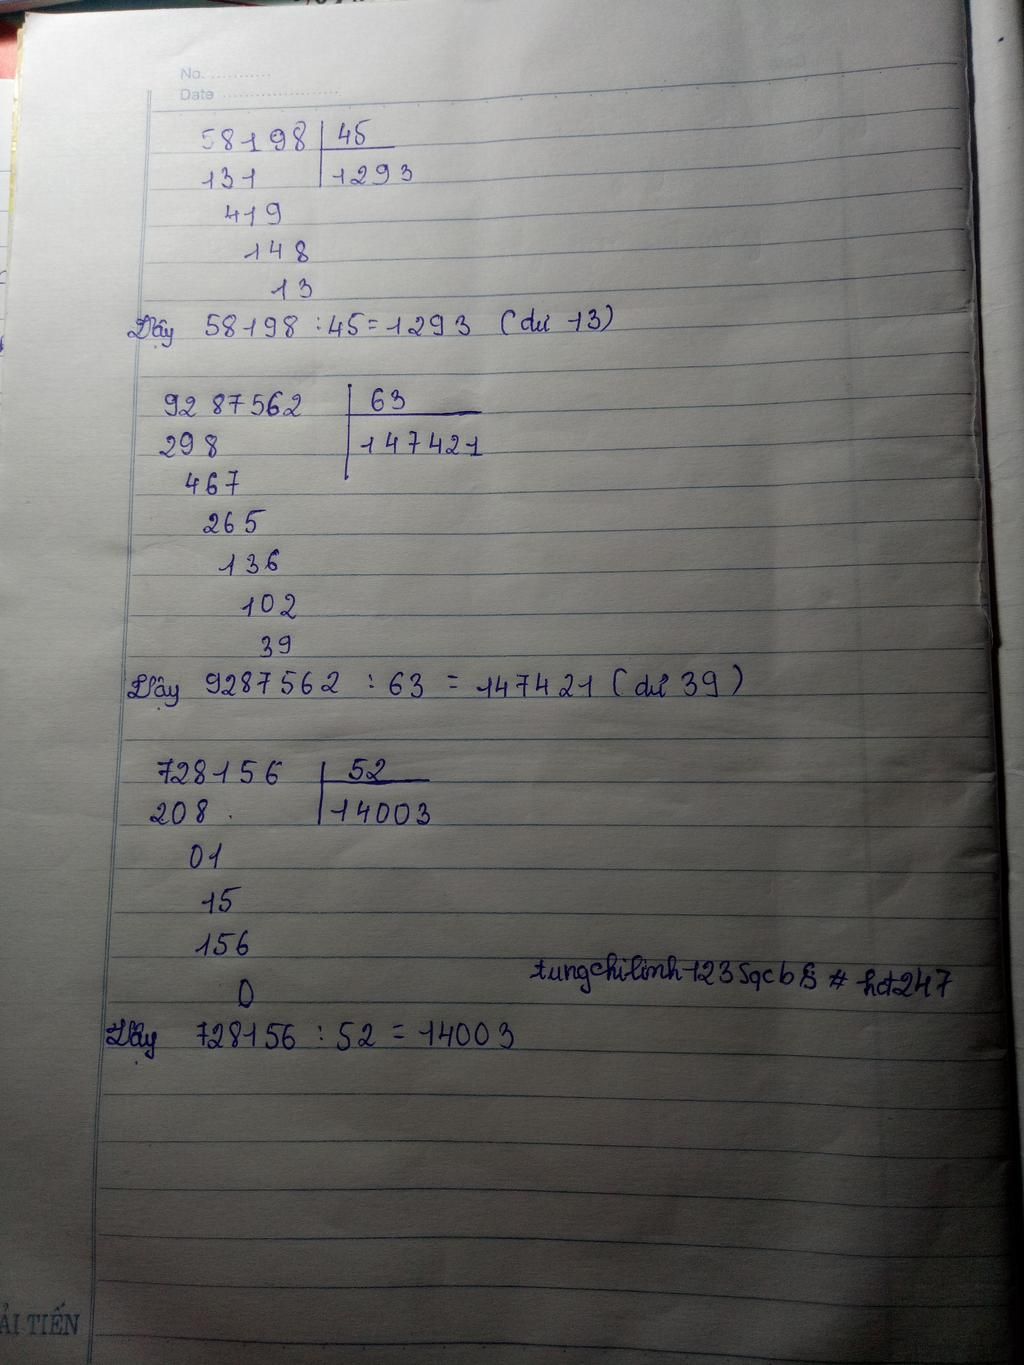 No. ............
Date ......................
58198 45
131 1293
419
148
13
Vậy 58198 : 45 = 1293 (dư 13)
9287562 63
298 147421
467
265
136
102
39
Vậy 9287562 : 63 = 147421 (dư 39)
728156 52
208 14003
01
15
156
0
tungchilinh1235qcb # hot247
Vậy 728156 : 52 = 14003
ẢI TIẾN